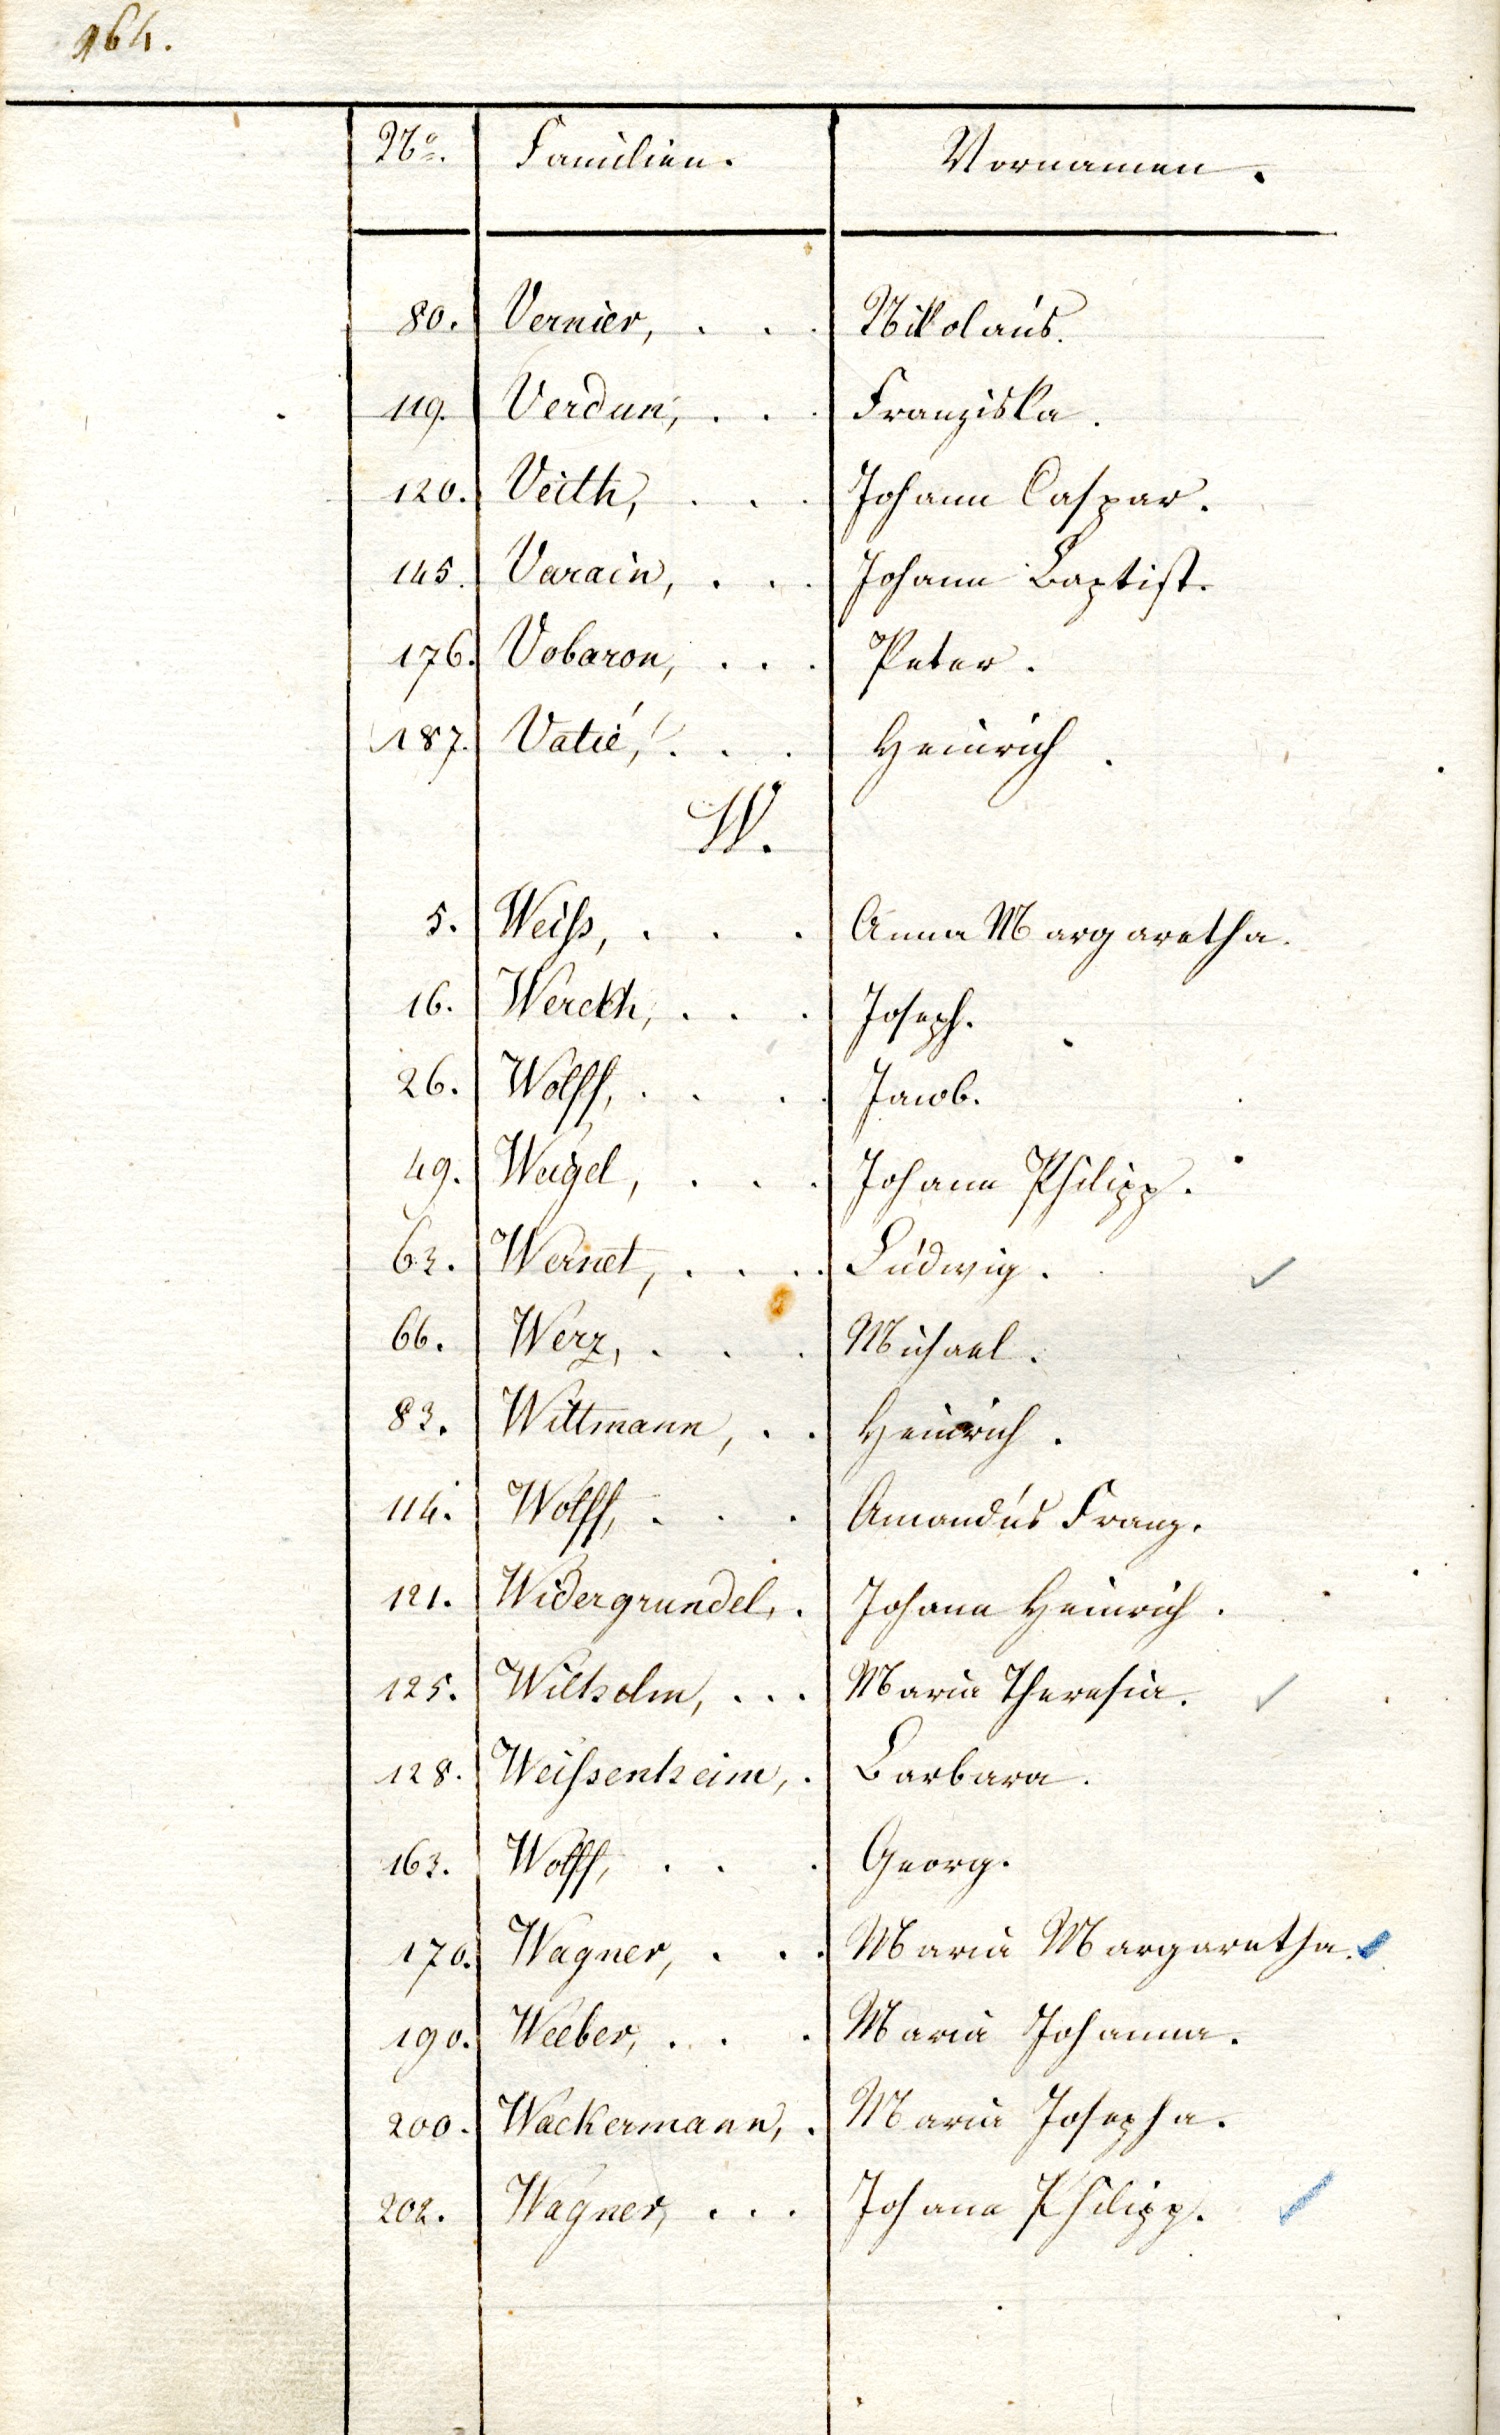 164.
No. Familien. Vornamen.
80. Vernier, . . . Nikolaus.
119. Verdun, . . . Franziska.
120. Veith, . . . Johann Caspar.
145. Varain, . . . Johann Baptist.
176. Vobaron, . . . Peter.
187. Vatié, . . . Heinrich.
W.
5. Weiß, . . . Anna Margaretha.
16. Werckh, . . . Joseph.
26. Wolff, . . . Jacob.
49. Weigel, . . . Johann Philipp.
63. Wernet, . . . Ludwig.
66. Werz, . . . Michael.
83. Wittmann, . . Heinrich.
114. Wolff, . . . Amandus Franz.
121. Widergrundel, . Johann Heinrich.
125. Wilhelm, . . . Maria Theresia.
128. Weißenheim, . Barbara.
163. Wolff, . . . Georg.
170. Wagner, . . . Maria Margaretha.
190. Weeber, . . . Maria Johanna.
200. Wackermann, . Maria Josepha.
202. Wagner, . . . Johann Philipp.